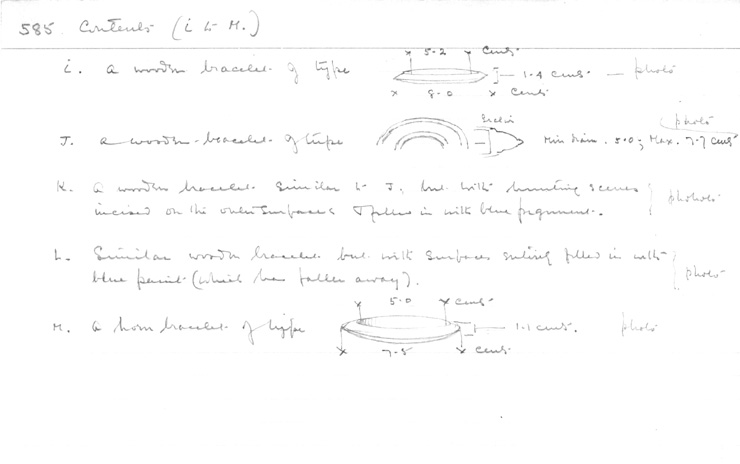 585 Contents (i to M.)
5.2 cms.
i. a wooden bracelet of type 1.4 cms. photo
8.0 cms.
Section photo
J. a wooden bracelet of type Min diam. 5.0; Max. 7.7 cms
K. A wooden bracelet similar to J, but with hunting scenes
incised on the outer surfaces & filled in with blue pigment. photos
L. Similar wooden bracelet but with surfaces entirely filled in with
blue paint (which has fallen away). photo
5.0 cms.
M. a horn bracelet of type 1.1 cms. photo
7.5 cms.